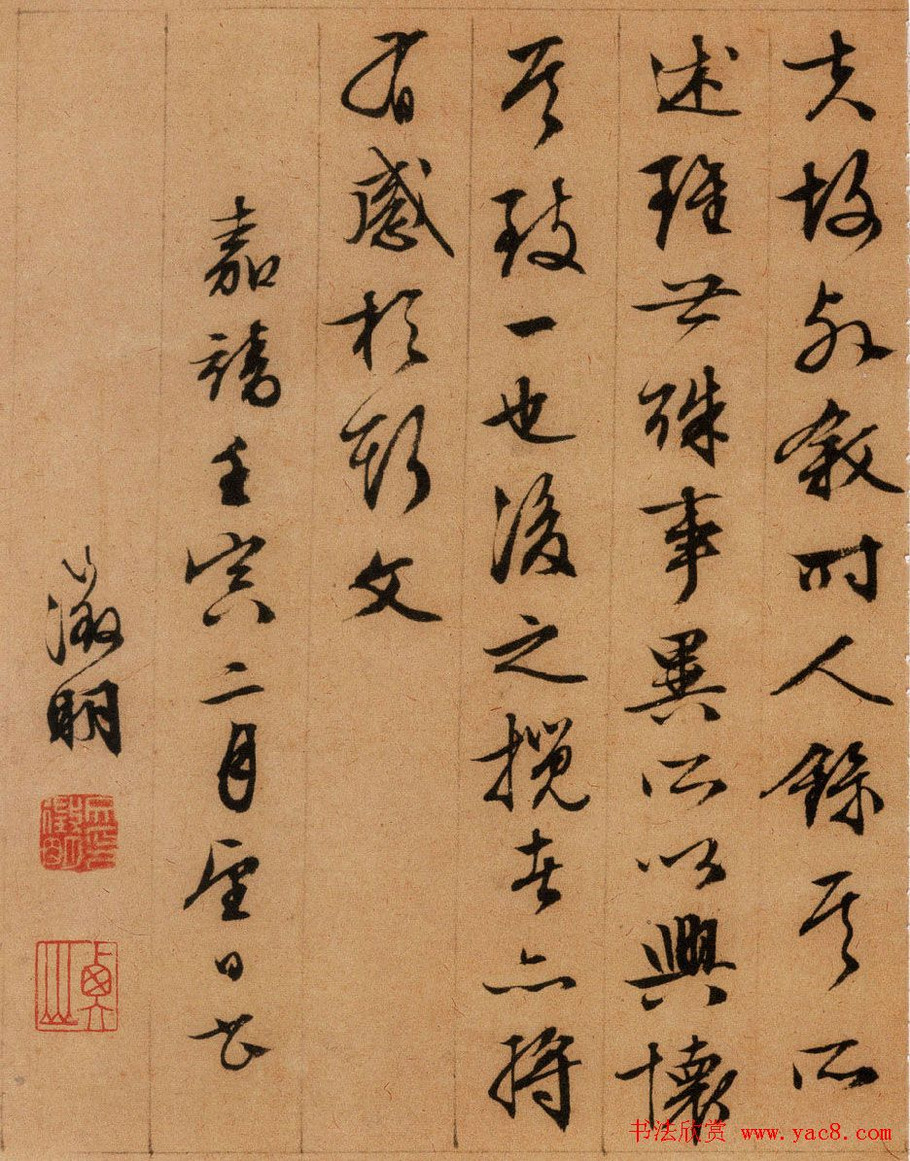 夫故列敘時人錄其所
述雖世殊事異所以興懷
其致一也後之攬者亦將
有感於斯文
嘉靖壬寅二月望日書
徵明
衡山
书法欣赏 www.yac8.com